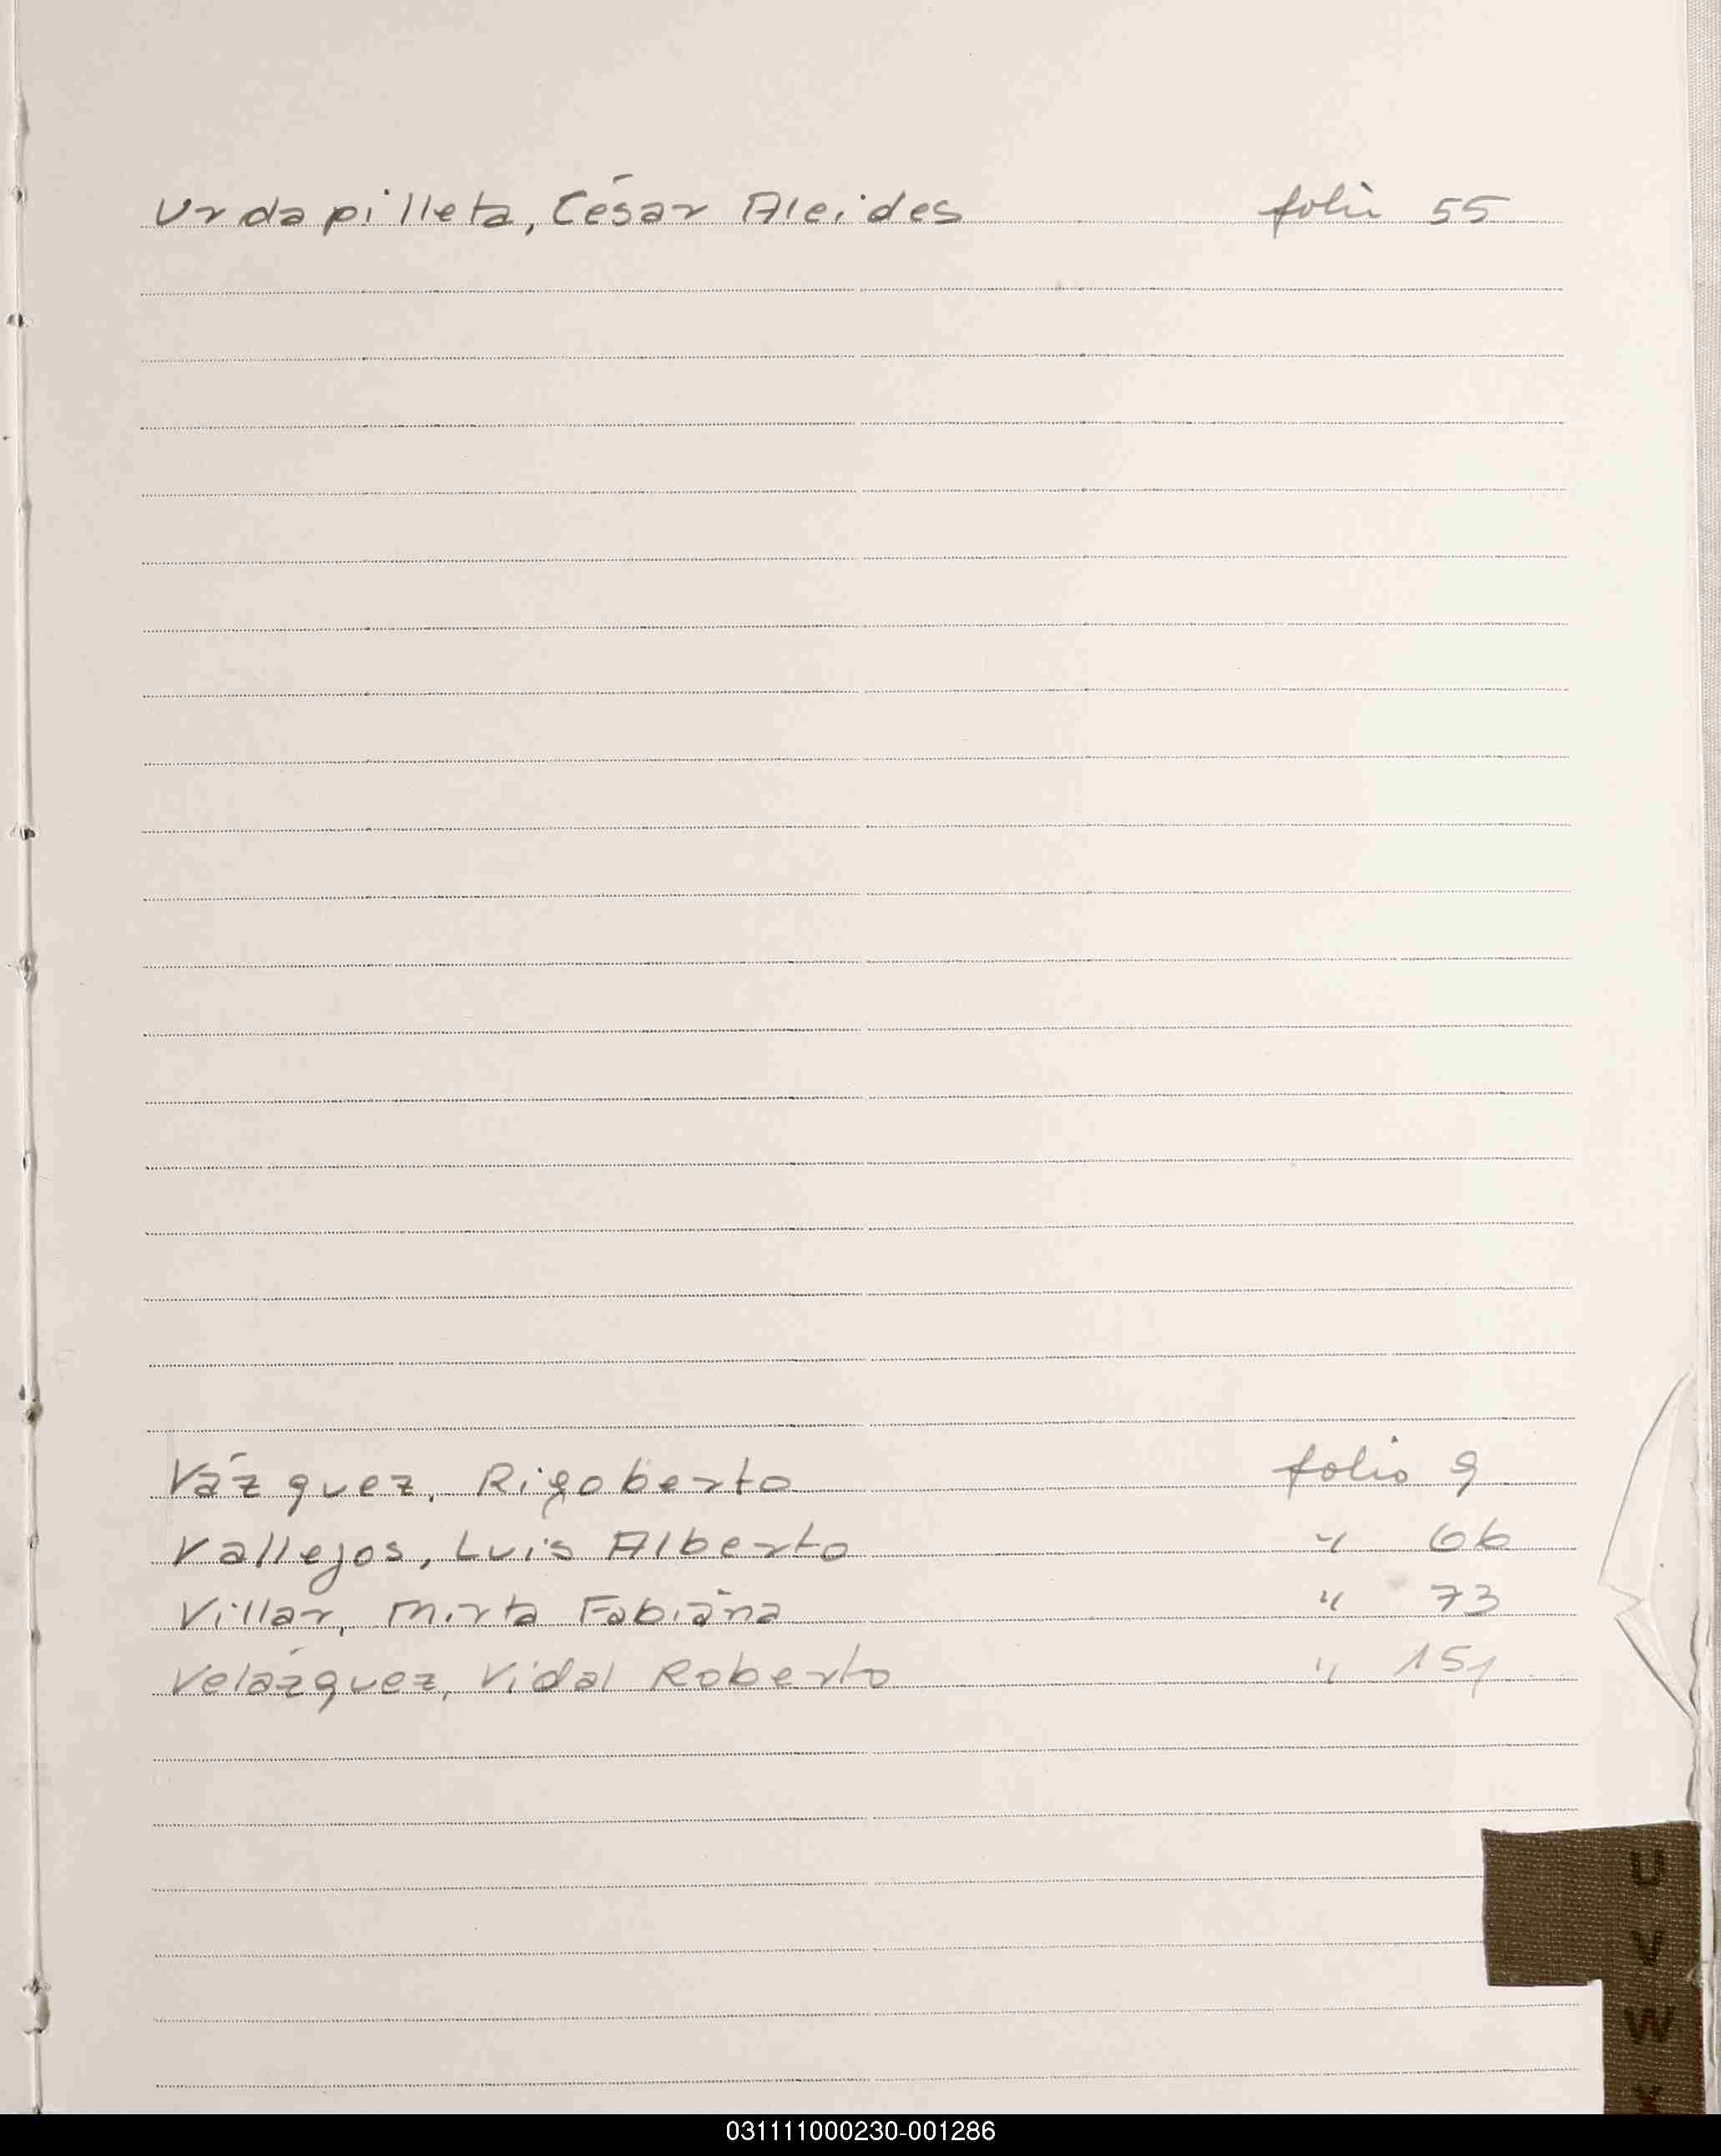 Urdapilleta, César Alcides folio 55
Vázquez, Rigoberto folio 9
Vallejos, Luis Alberto " 66
Villar, Mirta Fabiana " 73
Velázquez, Vidal Roberto " 151
U
V
W
X
031111000230-001286